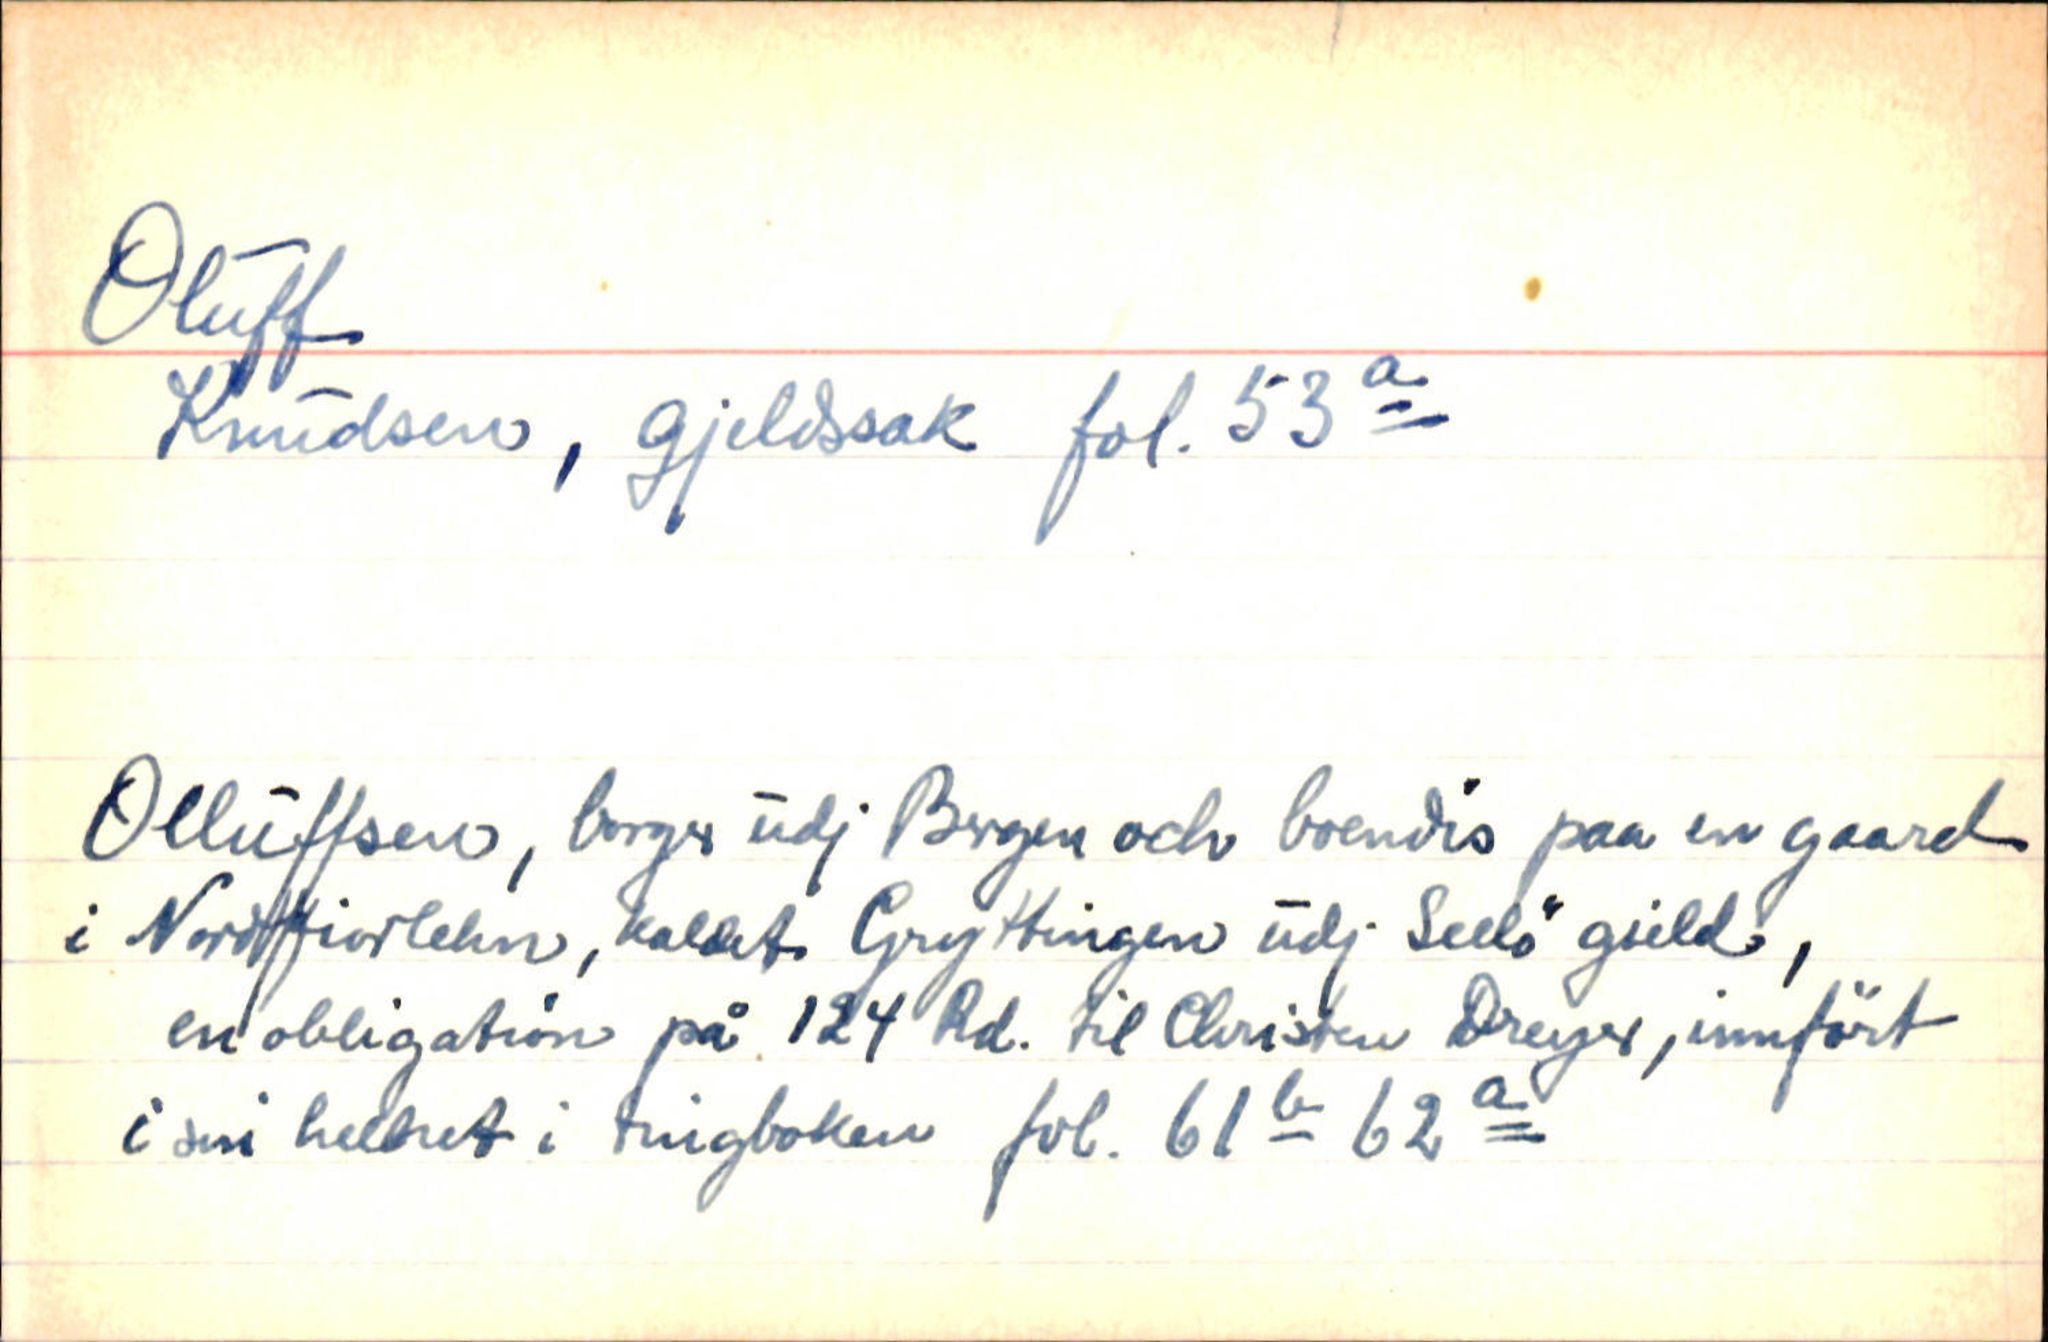 Olūff
Knūdsen, gjeldssak fol. 53a
Ollūffsen, borger ūdj Bergen och boendis paa en gaard
i Nordffiorlehn, kaldet Gryttingen ūdj Seelö gield,
en obligation på 124 Rd. til Christen Dreyer, innfört
i sin helhet i tingboken fol. 61b 62a